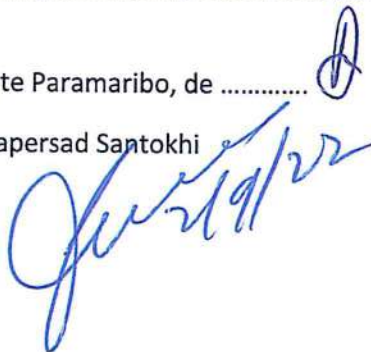 te Paramaribo, de .............
apersad Santokhi
2/9/22